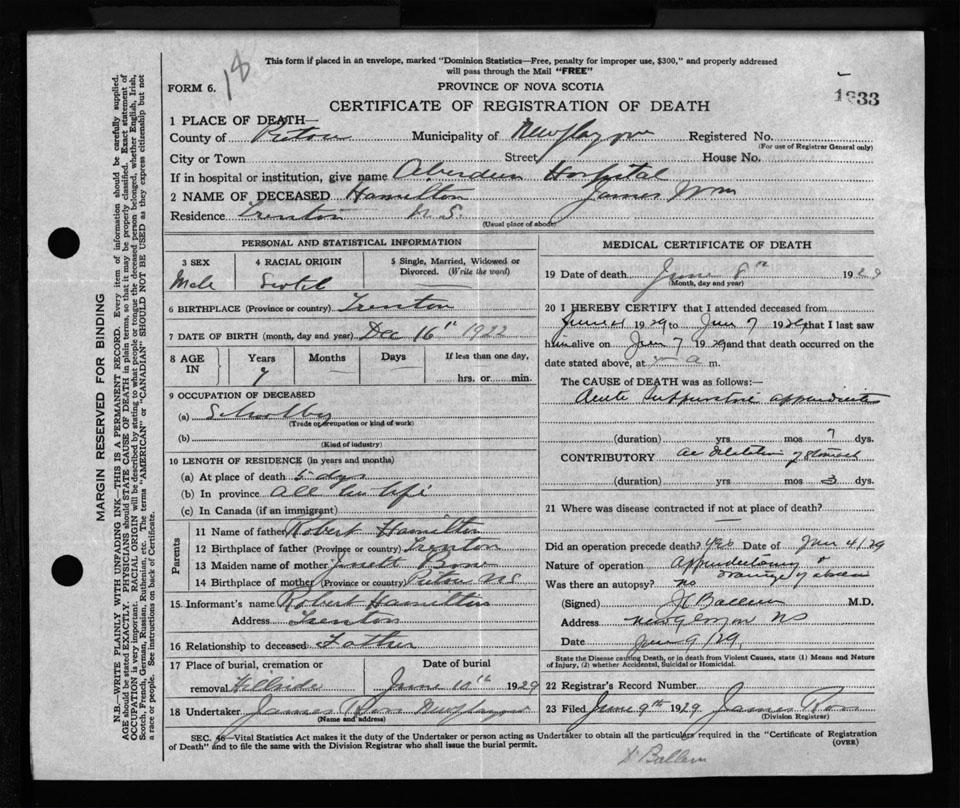 18
This form if placed in an envelope, marked "Dominion Statistics—Free, penalty for improper use, $300," and properly addressed
will pass through the Mail "FREE"
FORM 6.
PROVINCE OF NOVA SCOTIA
1933
CERTIFICATE OF REGISTRATION OF DEATH
1 PLACE OF DEATH—
County of Pictou Municipality of New Glasgow Registered No.
(For use of Registrar General only)
City or Town Street House No.
If in hospital or institution, give name Aberdeen Hospital
2 NAME OF DECEASED Hamilton James Wm
Residence Trenton N.S.
(Usual place of abode)
PERSONAL AND STATISTICAL INFORMATION
3 SEX 4 RACIAL ORIGIN 5 Single, Married, Widowed or
Divorced. (Write the word)
Male Scotch
6 BIRTHPLACE (Province or country) Trenton
7 DATE OF BIRTH (month, day and year) Dec 16th 1922
8 AGE IN Years Months Days If less than one day,
7 — — hrs. or min.
9 OCCUPATION OF DECEASED
(a) Schoolboy
(Trade or occupation or kind of work)
(b)
(Kind of industry)
10 LENGTH OF RESIDENCE (in years and months)
(a) At place of death 5 dys
(b) In province All his life
(c) In Canada (if an immigrant)
Parents
11 Name of father Robert Hamilton
12 Birthplace of father (Province or country) Trenton
13 Maiden name of mother
14 Birthplace of mother (Province or country) Pictou NS
15. Informant's name Robert Hamilton
Address Trenton
16 Relationship to deceased Father
17 Place of burial, cremation or Date of burial
removal Hillside June 10th 1929
18 Undertaker James Ross New Glasgow
(Name and address)
MEDICAL CERTIFICATE OF DEATH
19 Date of death June 8th 1929
(Month, day and year)
20 I HEREBY CERTIFY that I attended deceased from
June 4 1929 to June 7 1929 that I last saw
him alive on June 7 1929 and that death occurred on the
date stated above, at a m.
The CAUSE OF DEATH was as follows:—
Acute suppurative appendicitis
(duration) yrs mos 7 dys.
CONTRIBUTORY Ac dilatation of stomach
(duration) yrs mos 3 dys.
21 Where was disease contracted if not at place of death?
—
Did an operation precede death? yes Date of June 4/29
Nature of operation Appendectomy
drainage of abscess
Was there an autopsy? no
(Signed) Ballem M.D.
Address New Glasgow NS
Date June 9/29
State the Disease causing Death, or in death from Violent Causes, state (1) Means and Nature
of Injury, (2) whether Accidental, Suicidal or Homicidal.
22 Registrar's Record Number
23 Filed June 9th 1929 James Ross
(Division Registrar)
SEC. 46—Vital Statistics Act makes it the duty of the Undertaker or person acting as Undertaker to obtain all the particulars required in the "Certificate of Registration
of Death" and to file the same with the Division Registrar who shall issue the burial permit.
(OVER)
Dr Ballem
MARGIN RESERVED FOR BINDING
N.B.—WRITE PLAINLY WITH UNFADING INK—THIS IS A PERMANENT RECORD. Every item of information should be carefully supplied.
AGE should be stated EXACTLY. PHYSICIANS should STATE CAUSE OF DEATH in plain terms, so that it may be properly classified. Exact statement of
OCCUPATION is very important. RACIAL ORIGIN will be described by stating to what people or tongue the deceased person belonged, whether English, Irish,
Scotch, French, German, Russian, Ruthenian, etc. The terms "AMERICAN" or "CANADIAN" SHOULD NOT BE USED as they express citizenship but not
a race or people. See instructions on back of Certificate.